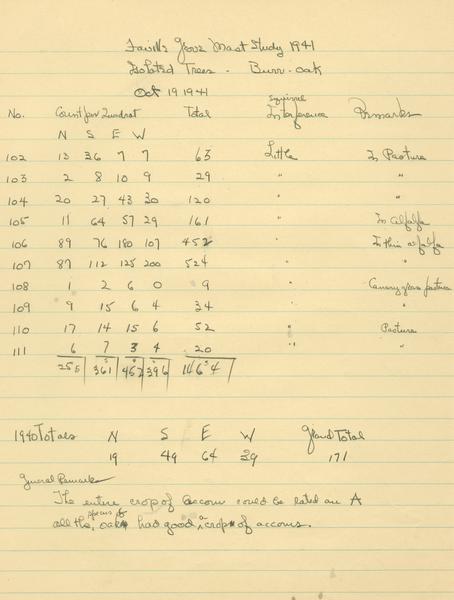 Faville Grove Mast Study 1941
Isolated Trees - Burr-oak
Oct 19 1941
No. Count per Quadrat Total Squirrel Interference Remarks
N S E W
102 13 36 7 7 63 Little In Pasture
103 2 8 10 9 29 " "
104 20 27 43 30 120 " "
105 11 64 57 29 161 " In alfalfa
106 89 76 180 107 452 " In thin alfalfa
107 87 112 125 200 524 " "
108 1 2 6 0 9 " Canary grass pasture
109 9 15 6 4 34 " "
110 17 14 15 6 52 " Pasture
111 6 7 3 4 20 " "
255 361 452 396 1464
1940 Totals N S E W Grand Total
19 49 64 39 171
General Remarks
The entire crop of acorns could be rated an A
all the species of oak had good a crop of acorns.